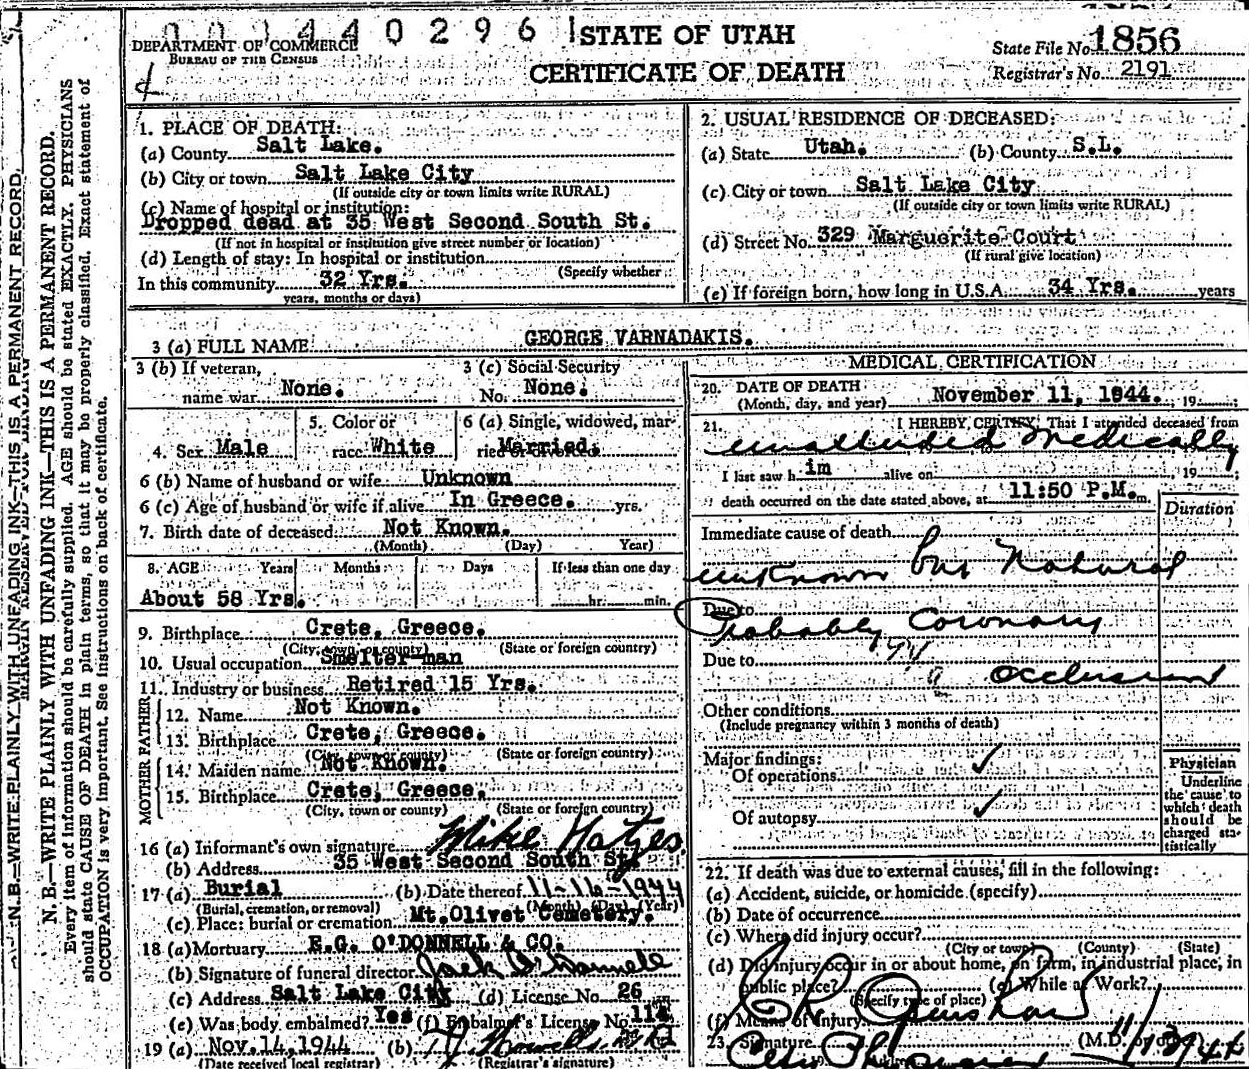 0 0 3 4 4 0 2 9 6 1
STATE OF UTAH
CERTIFICATE OF DEATH
DEPARTMENT OF COMMERCE
BUREAU OF THE CENSUS
State File No. 1856
Registrar's No. 2191
N.B.—WRITE PLAINLY WITH UNFADING INK—THIS IS A PERMANENT RECORD.
MARGIN RESERVED FOR BINDING
N. B.—WRITE PLAINLY WITH UNFADING INK—THIS IS A PERMANENT RECORD.
Every item of information should be carefully supplied. AGE should be stated EXACTLY. PHYSICIANS
should state CAUSE OF DEATH in plain terms, so that it may be properly classified. Exact statement of
OCCUPATION is very important. See instructions on back of certificate.
1. PLACE OF DEATH:
(a) County Salt Lake.
(b) City or town Salt Lake City
(If outside city or town limits write RURAL)
(c) Name of hospital or institution:
Dropped dead at 35 West Second South St.
(If not in hospital or institution give street number or location)
(d) Length of stay: In hospital or institution
(Specify whether
In this community 32 Yrs.
years, months or days)
2. USUAL RESIDENCE OF DECEASED:
(a) State Utah. (b) County S.L.
(c) City or town Salt Lake City
(If outside city or town limits write RURAL)
(d) Street No. 329 Marguerite Court
(If rural give location)
(e) If foreign born, how long in U.S.A. 34 Yrs. years
3 (a) FULL NAME GEORGE VARNADAKIS.
3 (b) If veteran,
name war None.
3 (c) Social Security
No. None.
4. Sex Male
5. Color or
race White
6 (a) Single, widowed, mar-
ried or divorced Married.
6 (b) Name of husband or wife Unknown
6 (c) Age of husband or wife if alive In Greece. yrs.
7. Birth date of deceased Not Known.
(Month) (Day) Year)
8. AGE Years Months Days If less than one day
About 58 Yrs. hr. min.
9. Birthplace Crete, Greece.
(City, town or county) (State or foreign country)
10. Usual occupation Smelter-man
11. Industry or business Retired 15 Yrs.
FATHER
12. Name Not Known.
13. Birthplace Crete, Greece.
(City, town or county) (State or foreign country)
MOTHER
14. Maiden name Not Known.
15. Birthplace Crete, Greece.
(City, town or county) (State or foreign country)
16 (a) Informant's own signature Mike Hatzes
(b) Address 35 West Second South St.
17 (a) Burial (b) Date thereof 11-16-1944
(Burial, cremation, or removal) (Month) (Day) (Year)
(c) Place: burial or cremation Mt.Olivet Cemetery.
18 (a) Mortuary E.G. O'DONNELL & CO.
(b) Signature of funeral director Jack O'Donnell
(c) Address Salt Lake City (d) License No. 26
(e) Was body embalmed? Yes (f) Embalmer's License No.
19 (a) Nov.14,1944 (b)
(Date received local registrar) (Registrar's signature)
MEDICAL CERTIFICATION
20. DATE OF DEATH
(Month, day, and year) November 11, 1944. , 19 ;
21. I HEREBY CERTIFY, That I attended deceased from
unattended medically
I last saw h im alive on , 19 ;
death occurred on the date stated above, at 11:50 P.M. m.
Duration
Immediate cause of death
unknown but Natural
Due to
Probably Coronary
Due to
occlusion
Other conditions
(Include pregnancy within 3 months of death)
Major findings:
Of operations ✓
Of autopsy ✓
Physician
Underline
the cause to
which death
should be
charged sta-
tistically
22. If death was due to external causes, fill in the following:
(a) Accident, suicide, or homicide (specify)
(b) Date of occurrence
(c) Where did injury occur?
(City or town) (County) (State)
(d) Did injury occur in or about home, on farm, in industrial place, in
public place? (e) While at Work?
(Specify type of place)
(f) Means of Injury
23. Signature (M.D. or other) 11/13/44